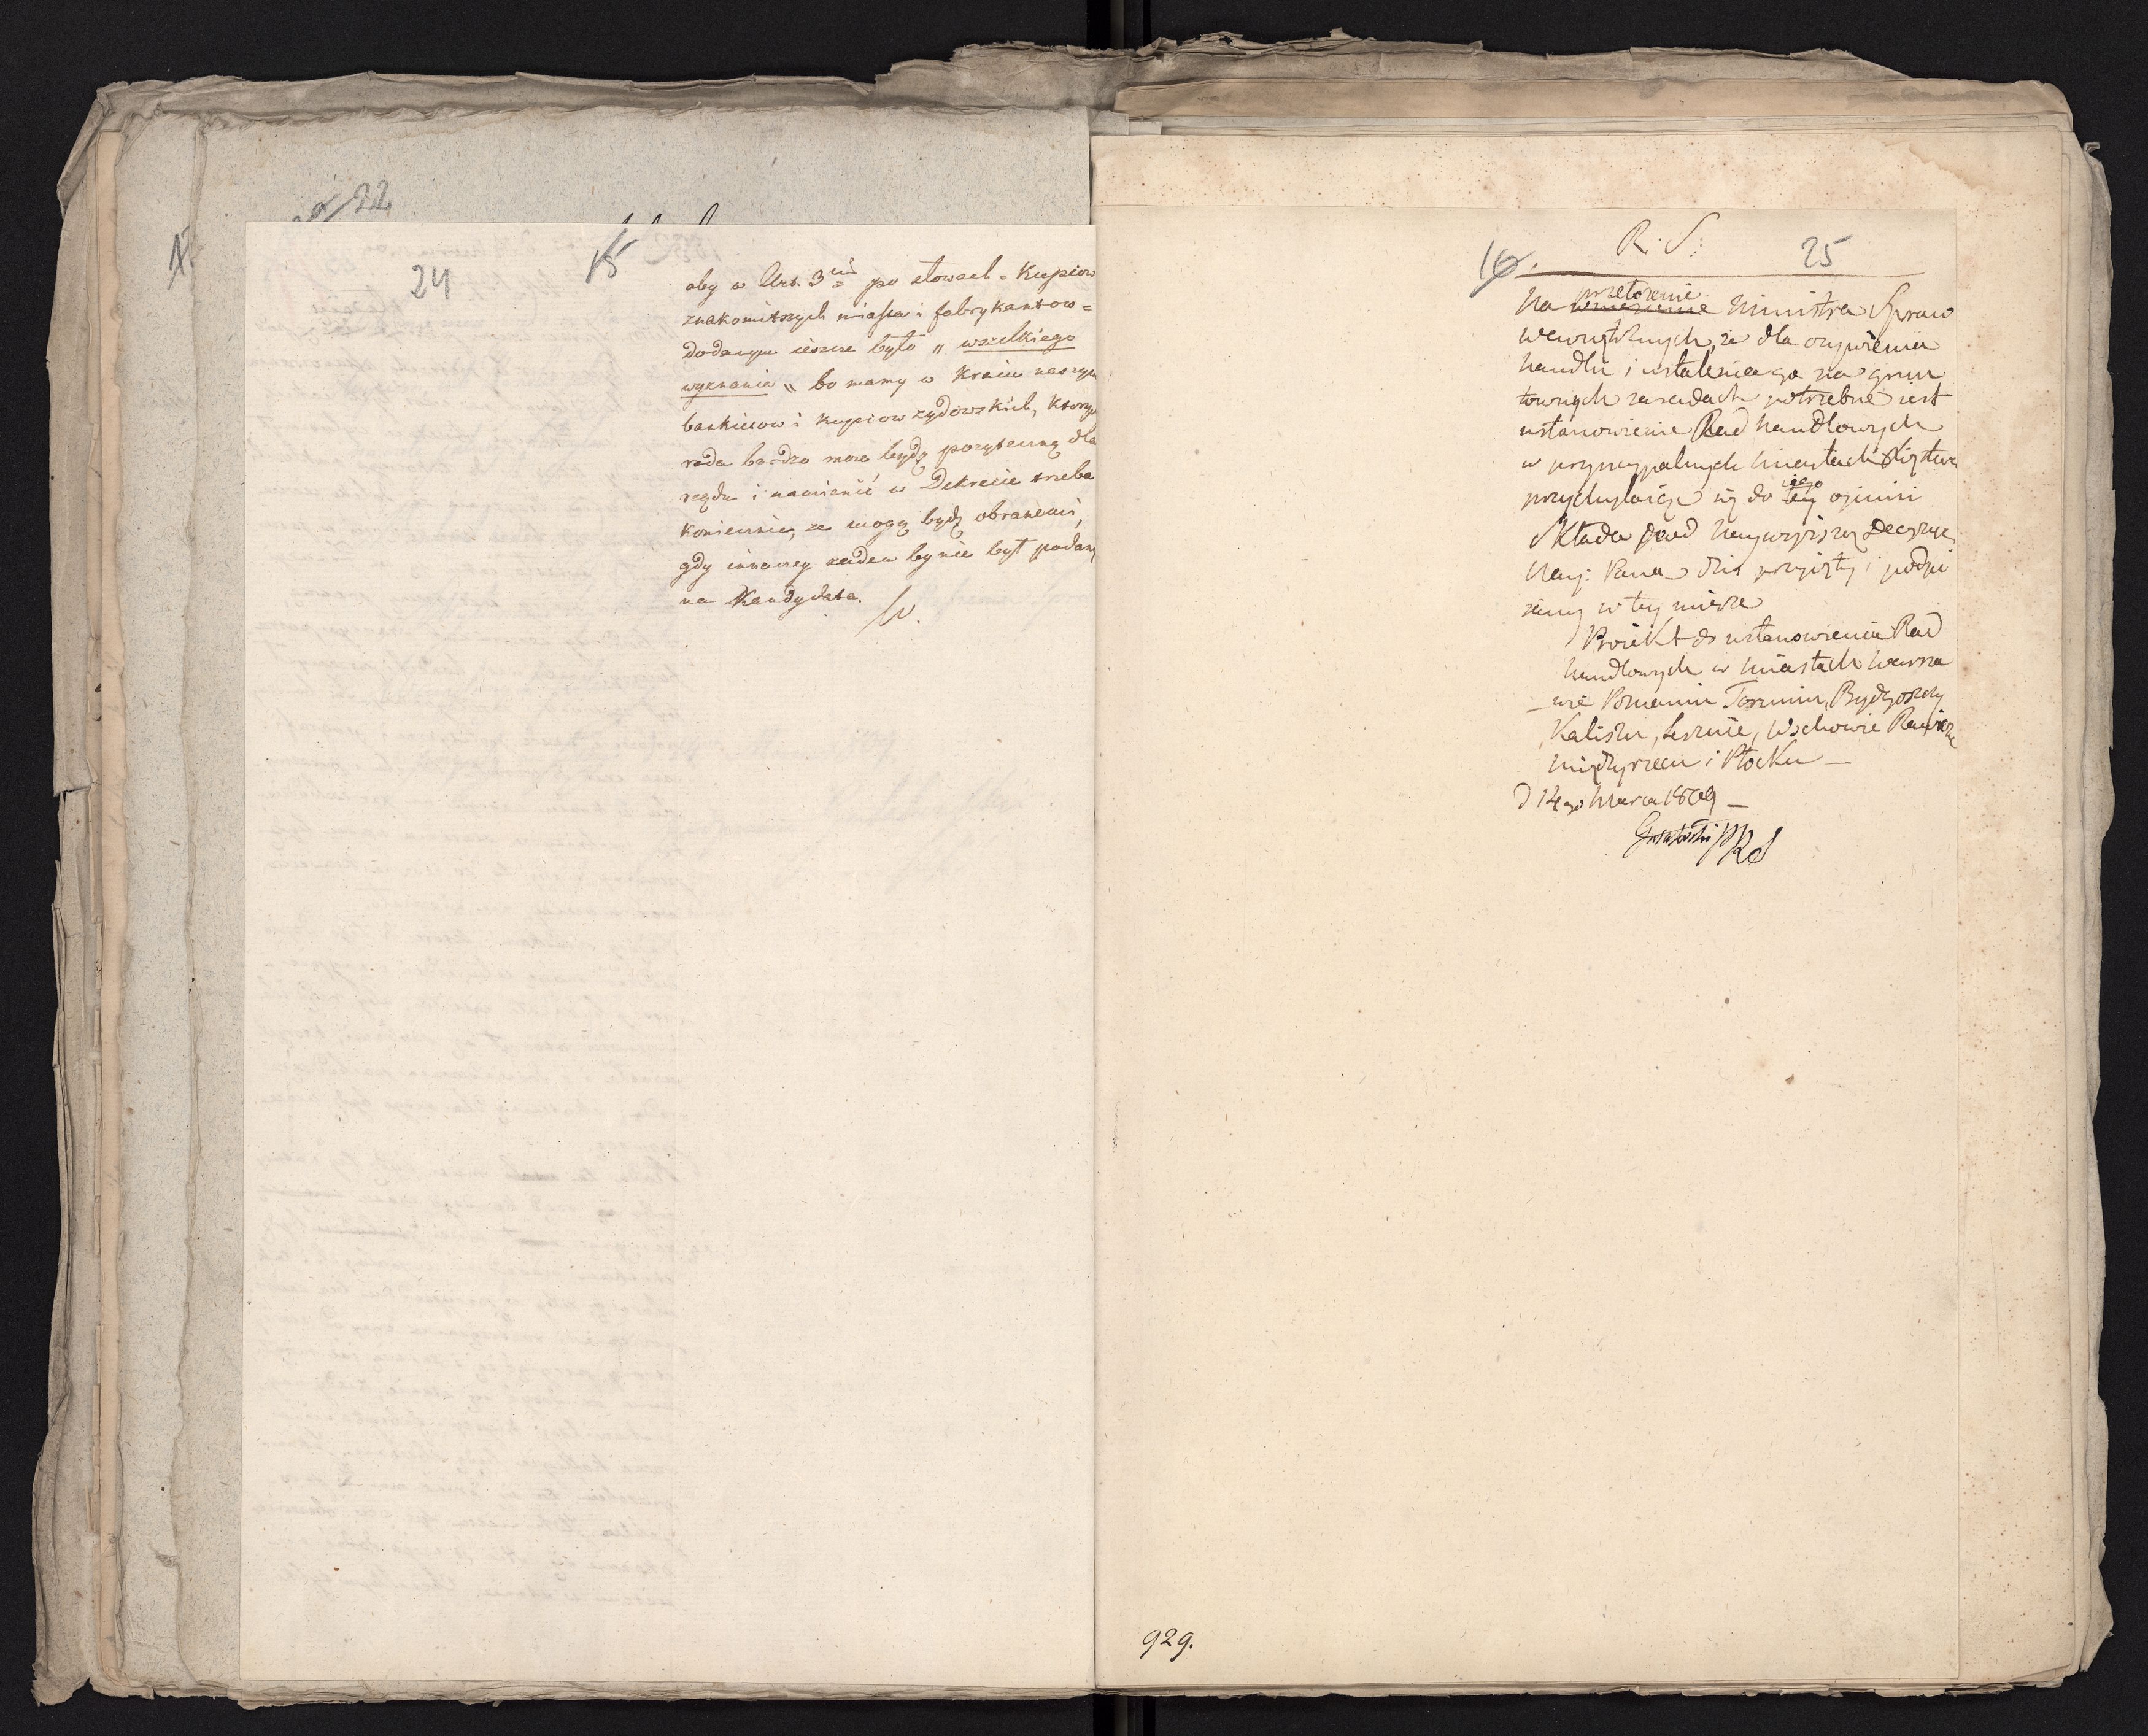 22
15
24
15
aby w Art. 3cim po słowach = Kupcow
znakomitszych miasta i fabrykantow =
dodanym ieszcze było „ wszelkiego
wyznania „ bo mamy w Kraiu naszym
bankierow i kupcow żydowskich, ktorych
rada bardzo może bydź pozyteczną dla
rządu i namienić w Dekrecie trzeba
koniecznie, ze mogą bydź obranemi,
gdy inaczey zaden by nie był podany
na Kandydata.
16.
R: S:
25
przełożenie
Na wniesienie Ministra Spraw
Wewnętrznych, że dla ożywienia
handlu i ustalenia go na grun
townych zasadach potrzebne iest
ustanowienie Rad handlowych
w pryncypalnych Miastach Xięstwa
iego
przychylaiąc się do tey opinii
Składa pod Naywyższą Decyzyę
Nayj: Pana dziś przyięty i podpi
sany w tey mierze
Proiekt do ustanowienia Rad
handlowych w Miastach Warsza
wie Poznaniu Toruniu, Bydgoszczy
Kaliszu, Lesznie, Wschowie Rawiczu
Międzyrzeczu i Płocku —
d 14go Marca 1809 —
929.